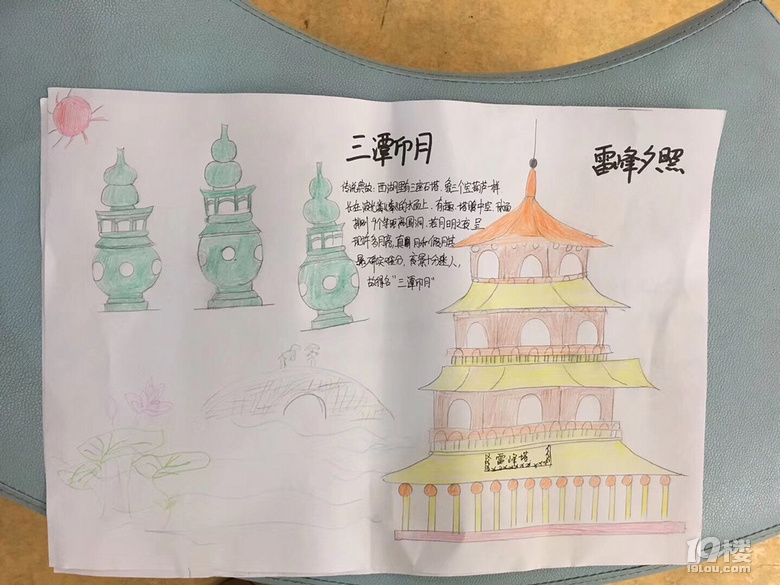 三潭印月
雷峰夕照
传说典故：西湖里有三座石塔，象三个宝葫芦一样
长在波光粼粼的水面上，有趣，塔腹中空，球面
排列 个等距离圆洞，若月明之夜，呈
现许多月亮，真月和假月其
确实难分，夜景十分迷人，
故得名“三潭印月”
雷峰塔
19楼
19lou.com